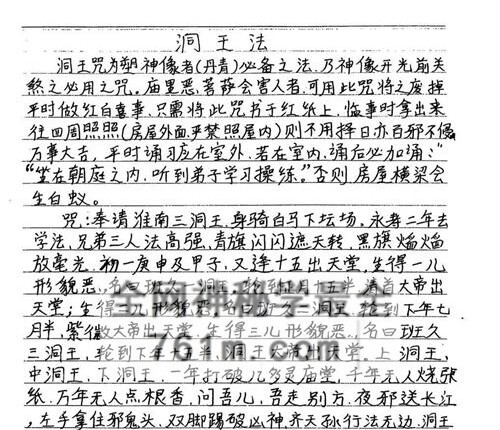 洞王法
洞王咒为塑神像者(丹青)必备之法.乃神像开光前关
煞之必用之咒。庙里恶,菩萨会害人者,可用此咒将之废掉
平时做红白喜事,只需将此咒书于红纸上,临事时拿出来
往四周照照(房屋外面,严禁照屋内)则不用择日亦百邪不侵
万事大吉,平时诵习应在室外,若在室内,诵后必加诵:"
"坐在朝庭之内,听到弟子学习操练。"否则,房屋横梁会
生白蚁。
咒:奉请淮南三洞王,身骑白马下坛场,永寿二年去
学法,兄弟三人法高强,青旗闪闪遮天转,黑旗焔焔
放毫光,初一庚申及甲子,又逢十五出天堂,生得一儿
形貌恶,名曰班久一洞王,轮到正月十五半,清首大帝出
天堂;生得二儿形貌恶,名曰班久二洞王,轮到下年七
月半,紫微大帝出天堂,生得三儿形貌恶,名曰班久
三洞王,轮到下年十五半,洞王大帝出天堂,上洞王,
中洞王,下洞王,一年打破几多灵庙堂,千年无人烧张
纸,万年无人点根香,问吾儿,吾走别方,夜邪送长江,
左手拿住邪鬼头,双脚踢破凶神齐天孙行法无边,洞王
761m.com